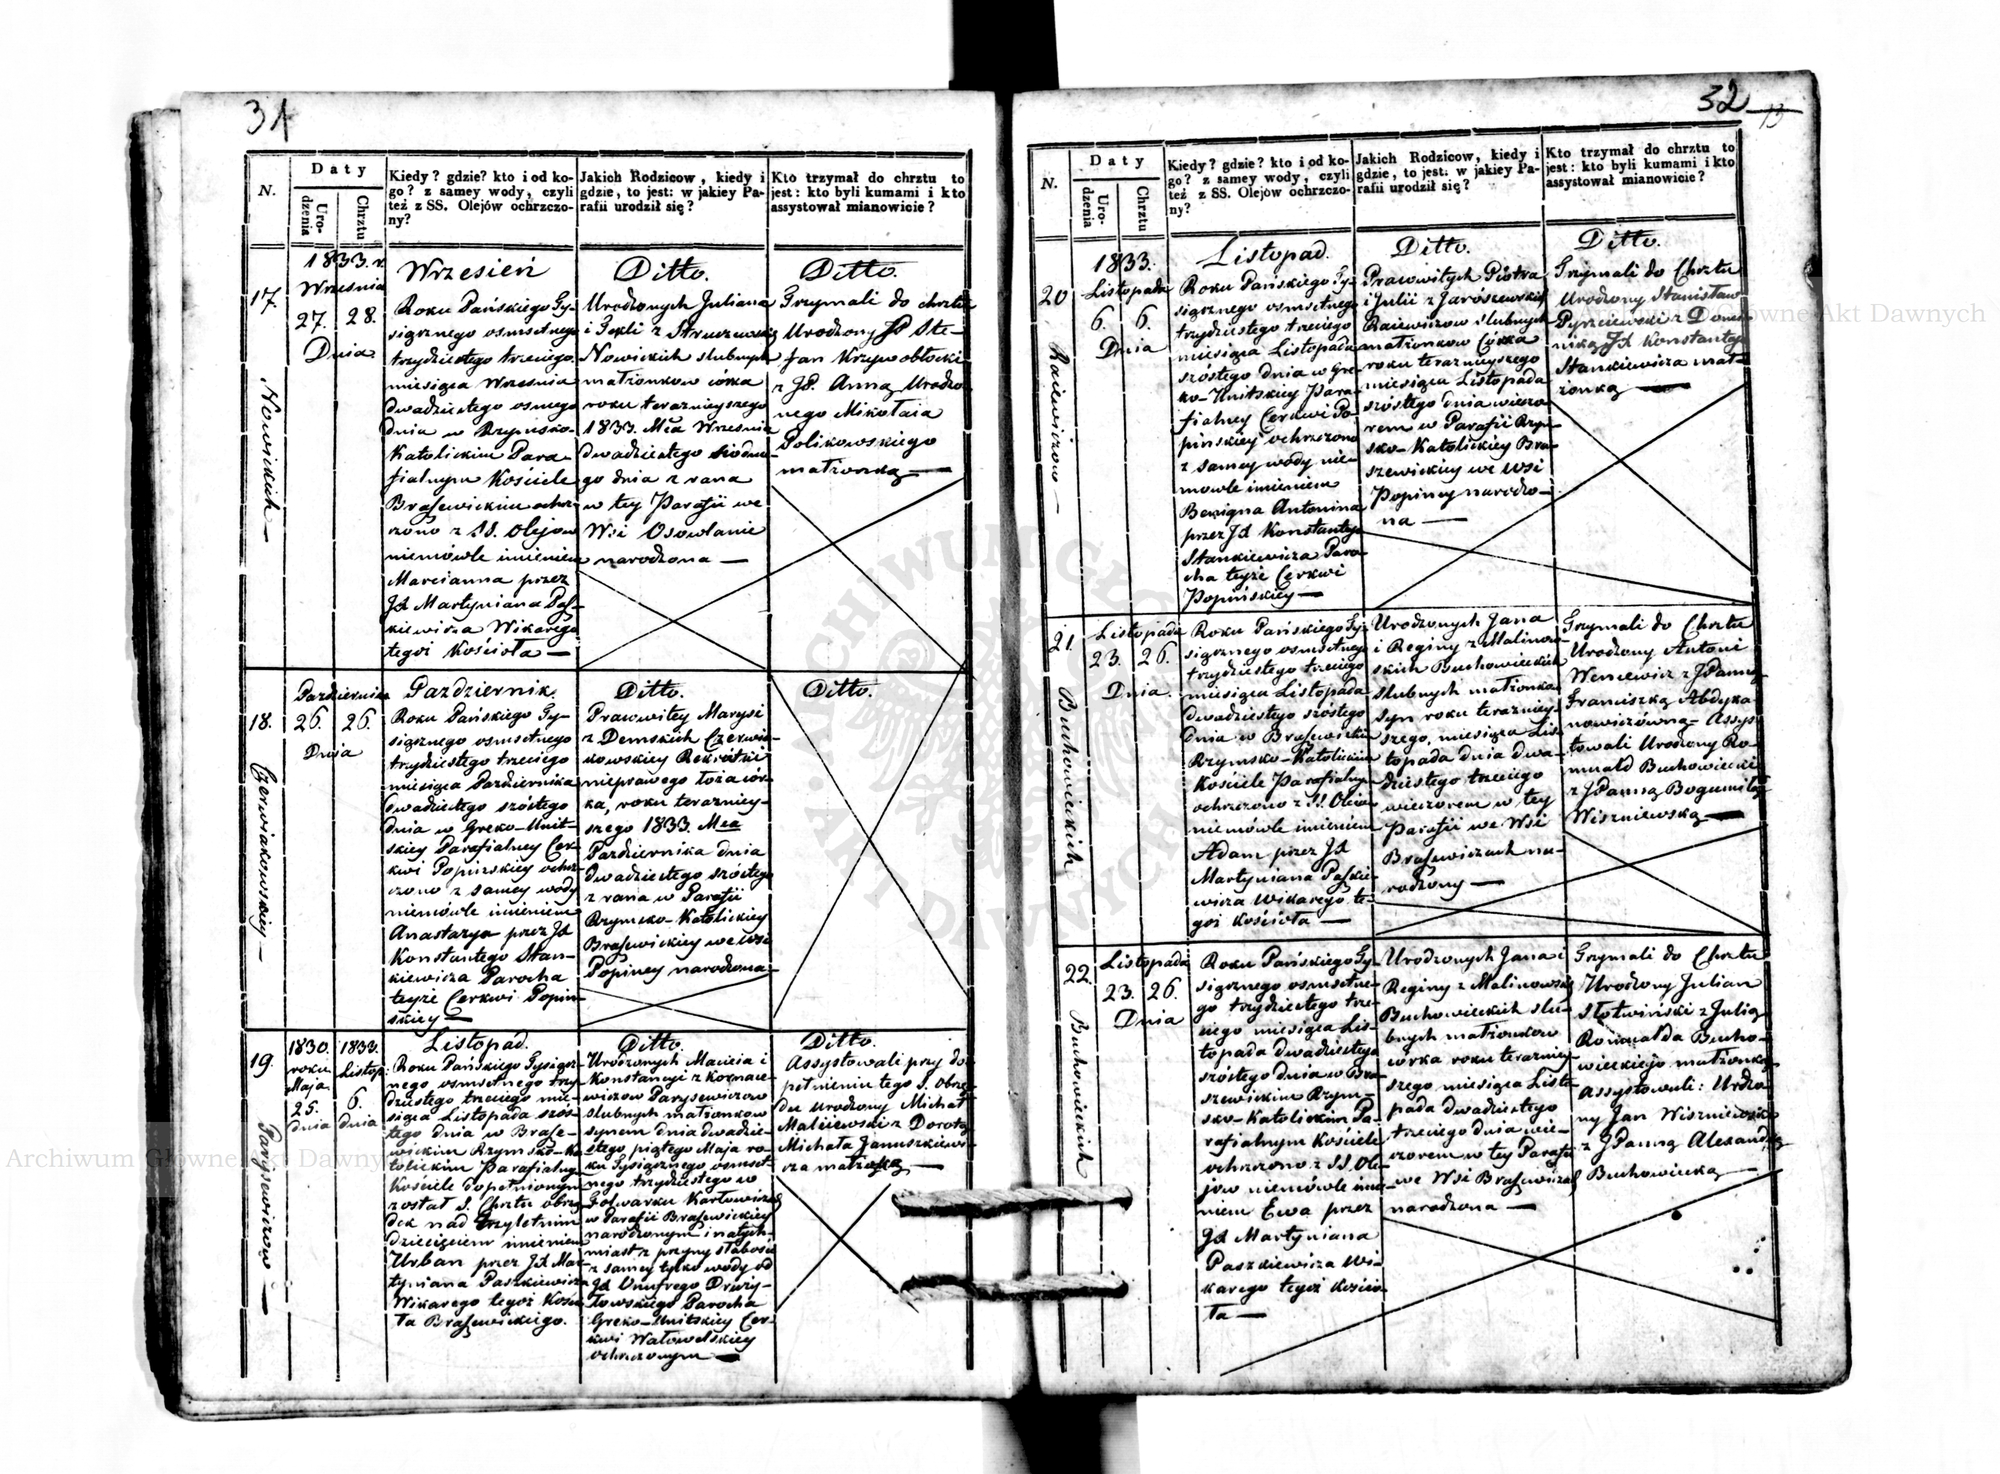 31
N.
Daty
Uro-
dzenia
Chrztu
Kiedy? gdzie? kto i od ko-
go? z samey wody, czyli
też z SS. Olejów ochrzczo-
ny?
Jakich Rodzicow, kiedy i
gdzie, to jest: w jakiey Pa-
rafii urodził się?
Kto trzymał do chrztu to
jest: kto byli kumami i kto
assystował mianowicie?
17.
Nowickich —
1833. r.
Września
27. 28.
Dnia
Wrzesień
Roku Pańskiego Ty-
siącznego osmsetnego
trzydziestego trzeciego
miesiąca Września
dwadziestego osmego
dnia w Rzymsko-
Katolickim Para-
fialnym Kościele
Braszewickim ochrz-
czono z SS. Olejow
niemówle imieniem
Marcianna przez
JX Martyniana Pasz-
kiewicza Wikarego
tegoż Kościoła —
Ditto.
Urodzonych Juliana
i Tekli z
Nowickich slubnych
małżonkow córka
roku teraznieyszego
1833. Mca Września
dwadziestego siódme-
go dnia z rana
w tey Parafii we
Wsi Osowlanie
narodzona —
Ditto.
Trzymali do chrztu
Urodzony JP Ste-
fan Krzywobłocki
z JP. Anną Urodzo-
nego Mikołaia
Polikowskiego
małżonką —
18.
Czerwiakowskiey —
Pazdziernika
26. 26.
Dnia
Pazdziernik.
Roku Pańskiego Ty-
siącznego osmsetnego
trzydziestego trzeciego
miesiąca Pazdziernika
dwadziestego szóstego
dnia w Greko-Unit-
skiey Parafialney Cer-
kwi Popinskiey ochrz-
czono z samey wody
niemówle imieniem
Anastazya przez JX
Konstantego Stan-
kiewicza Parocha
teyże Cerkwi Popin-
skiey —
Ditto.
Prawowitey Marysi
z Demskich Czerwia-
kowskiey Rekrótki
nieprawego łoża cór-
ka, roku terazniey-
szego 1833. Mca
Pazdziernika dnia
dwadziestego szóstego
z rana w Parafii
Rzymsko-Katolickiey
Braszewickiey we wsi
Popiney narodzona
Ditto.
19.
Parysewiczow —
1830.
roku
Maja
25.
dnia
1833.
Listop:
6.
dnia
Listopad.
Roku Pańskiego Tysiącz-
nego osmsetnego trzy-
dziestego trzeciego mie-
siąca Listopada szós-
tego dnia w Brasze-
wickim Rzymsko-Ka-
tolickim Parafialnym
Kościele dopełnionym
został S. Chrztu obrzą-
dek nad trzyletnim
dziecięciem imieniem
Urban przez JX Mar-
tyniana Paszkiewicza
Wikarego tegoż Kościo-
ła Braszewickiego.
Ditto.
Urodzonych Macieia i
Konstancyi z
Parysewiczow
slubnych małżonkow
synem dnia dwadzie-
stego piątego Maja ro-
ku Tysiącznego osmset-
nego trzydziestego w
Folwarku
w Parafii Braszewickiey
narodzonym i natych-
miast z przyny słabości
z samey tylko wody od
JX Onufrego
Parocha
Greko-Unitskiey Cer-
kwi
ochrzczonym —
Ditto.
Assystowali przy do-
pełnieniu tego S. obrzę-
du Urodzony Michał
Maleiewski z Dorotą
Michała Januszkiewi-
cza małżonką —
32
13
N.
Daty
Uro-
dzenia
Chrztu
Kiedy? gdzie? kto i od ko-
go? z samey wody, czyli
też z SS. Olejów ochrzczo-
ny?
Jakich Rodzicow, kiedy i
gdzie, to jest: w jakiey Pa-
rafii urodził się?
Kto trzymał do chrztu to
jest: kto byli kumami i kto
assystował mianowicie?
20
Raiewiczow —
1833.
Listopada
6. 6.
Dnia
Listopad.
Roku Pańskiego Ty-
siącznego osmsetnego
trzydziestego trzeciego
miesiąca Listopada
szóstego dnia w Gre-
ko-Unitskiey Para-
fialney Cerkwi Po-
pińskiey ochrzczono
z samey wody nie-
mowle imieniem
Benigna Antonina
przez JX Konstantego
Stankiewicza Paro-
cha teyże Cerkwi
Popińskiey —
Ditto.
Prawowitych Piotra
i Julii z Jaroszewskich
Raiewiczow slubnych
małżonkow Córka
roku teraznieyszego
miesiąca Listopada
szóstego dnia wieczo-
rem w Parafii Rzym-
sko-Katolickiey Bra-
szewickiey we wsi
Popiney narodzo-
na —
Ditto.
Trzymali do Chrztu
Urodzony Stanisław
z Domi-
niką JX Konstantego
Stankiewicza mał-
żonką —
21.
Buchowieckich
Listopada
23. 26.
Dnia.
Roku Pańskiego Ty-
siącznego osmsetnego
trzydziestego trzeciego
miesiąca Listopada
dwadziestego szóstego
dnia w Braszewickim
Rzymsko-Katolickim
Kościele Parafialnym
ochrzczono z SS. Olejow
niemówle imieniem
Adam przez JX
Martyniana Paszkie-
wicza Wikarego te-
goż Kościoła —
Urodzonych Jana
i Reginy z Malinow-
skich Buchowieckich
slubnych małżonkow
syn roku terazniey-
szego, miesiąca Lis-
topada dnia dwa-
dziestego trzeciego
wieczorem w tey
Parafii we Wsi
Braszewiczach na-
rodzony —
Trzymali do Chrztu
Urodzony Antoni
Weniewicz z JPanną
Franciszką Abdyka-
nowiczówną — Assys-
towali Urodzony Ro-
muald Buchowiecki
z JPanną Bogumiłą
Wiszniewską —
22.
Buchowieckich
Listopada
23. 26.
Dnia
Roku Pańskiego Ty-
siącznego osmsetne-
go trzydziestego trze-
ciego miesiąca Lis-
topada dwadziestego
szóstego dnia w Bra-
szewickim Rzym-
sko-Katolickim Pa-
rafialnym Kościele
ochrzczono z SS. Ole-
jow niemówle imie-
niem Ewa przez
JX Martyniana
Paszkiewicza Wi-
karego tegoż Kościo-
ła —
Urodzonych Jana i
Reginy z Malinowskich
Buchowieckich slu-
bnych małżonkow
córka roku terazniey-
szego miesiąca Listo-
pada dwadziestego
trzeciego dnia wie-
czorem w tey Parafii
we Wsi Braszewiczach
narodzona —
Trzymali do Chrztu
Urodzony Julian
Słotwiński z Julią
Romualda Bucho-
wieckiego małżonką
assystowali: Urodzo-
ny Jan Wiszniewski
z JPanną Alexandrą
Buchowiecką —
Archiwum Główne Akt Dawnych
Archiwum Główne Akt Dawnych
ARCHIWUM GŁÓWNE AKT DAWNYCH